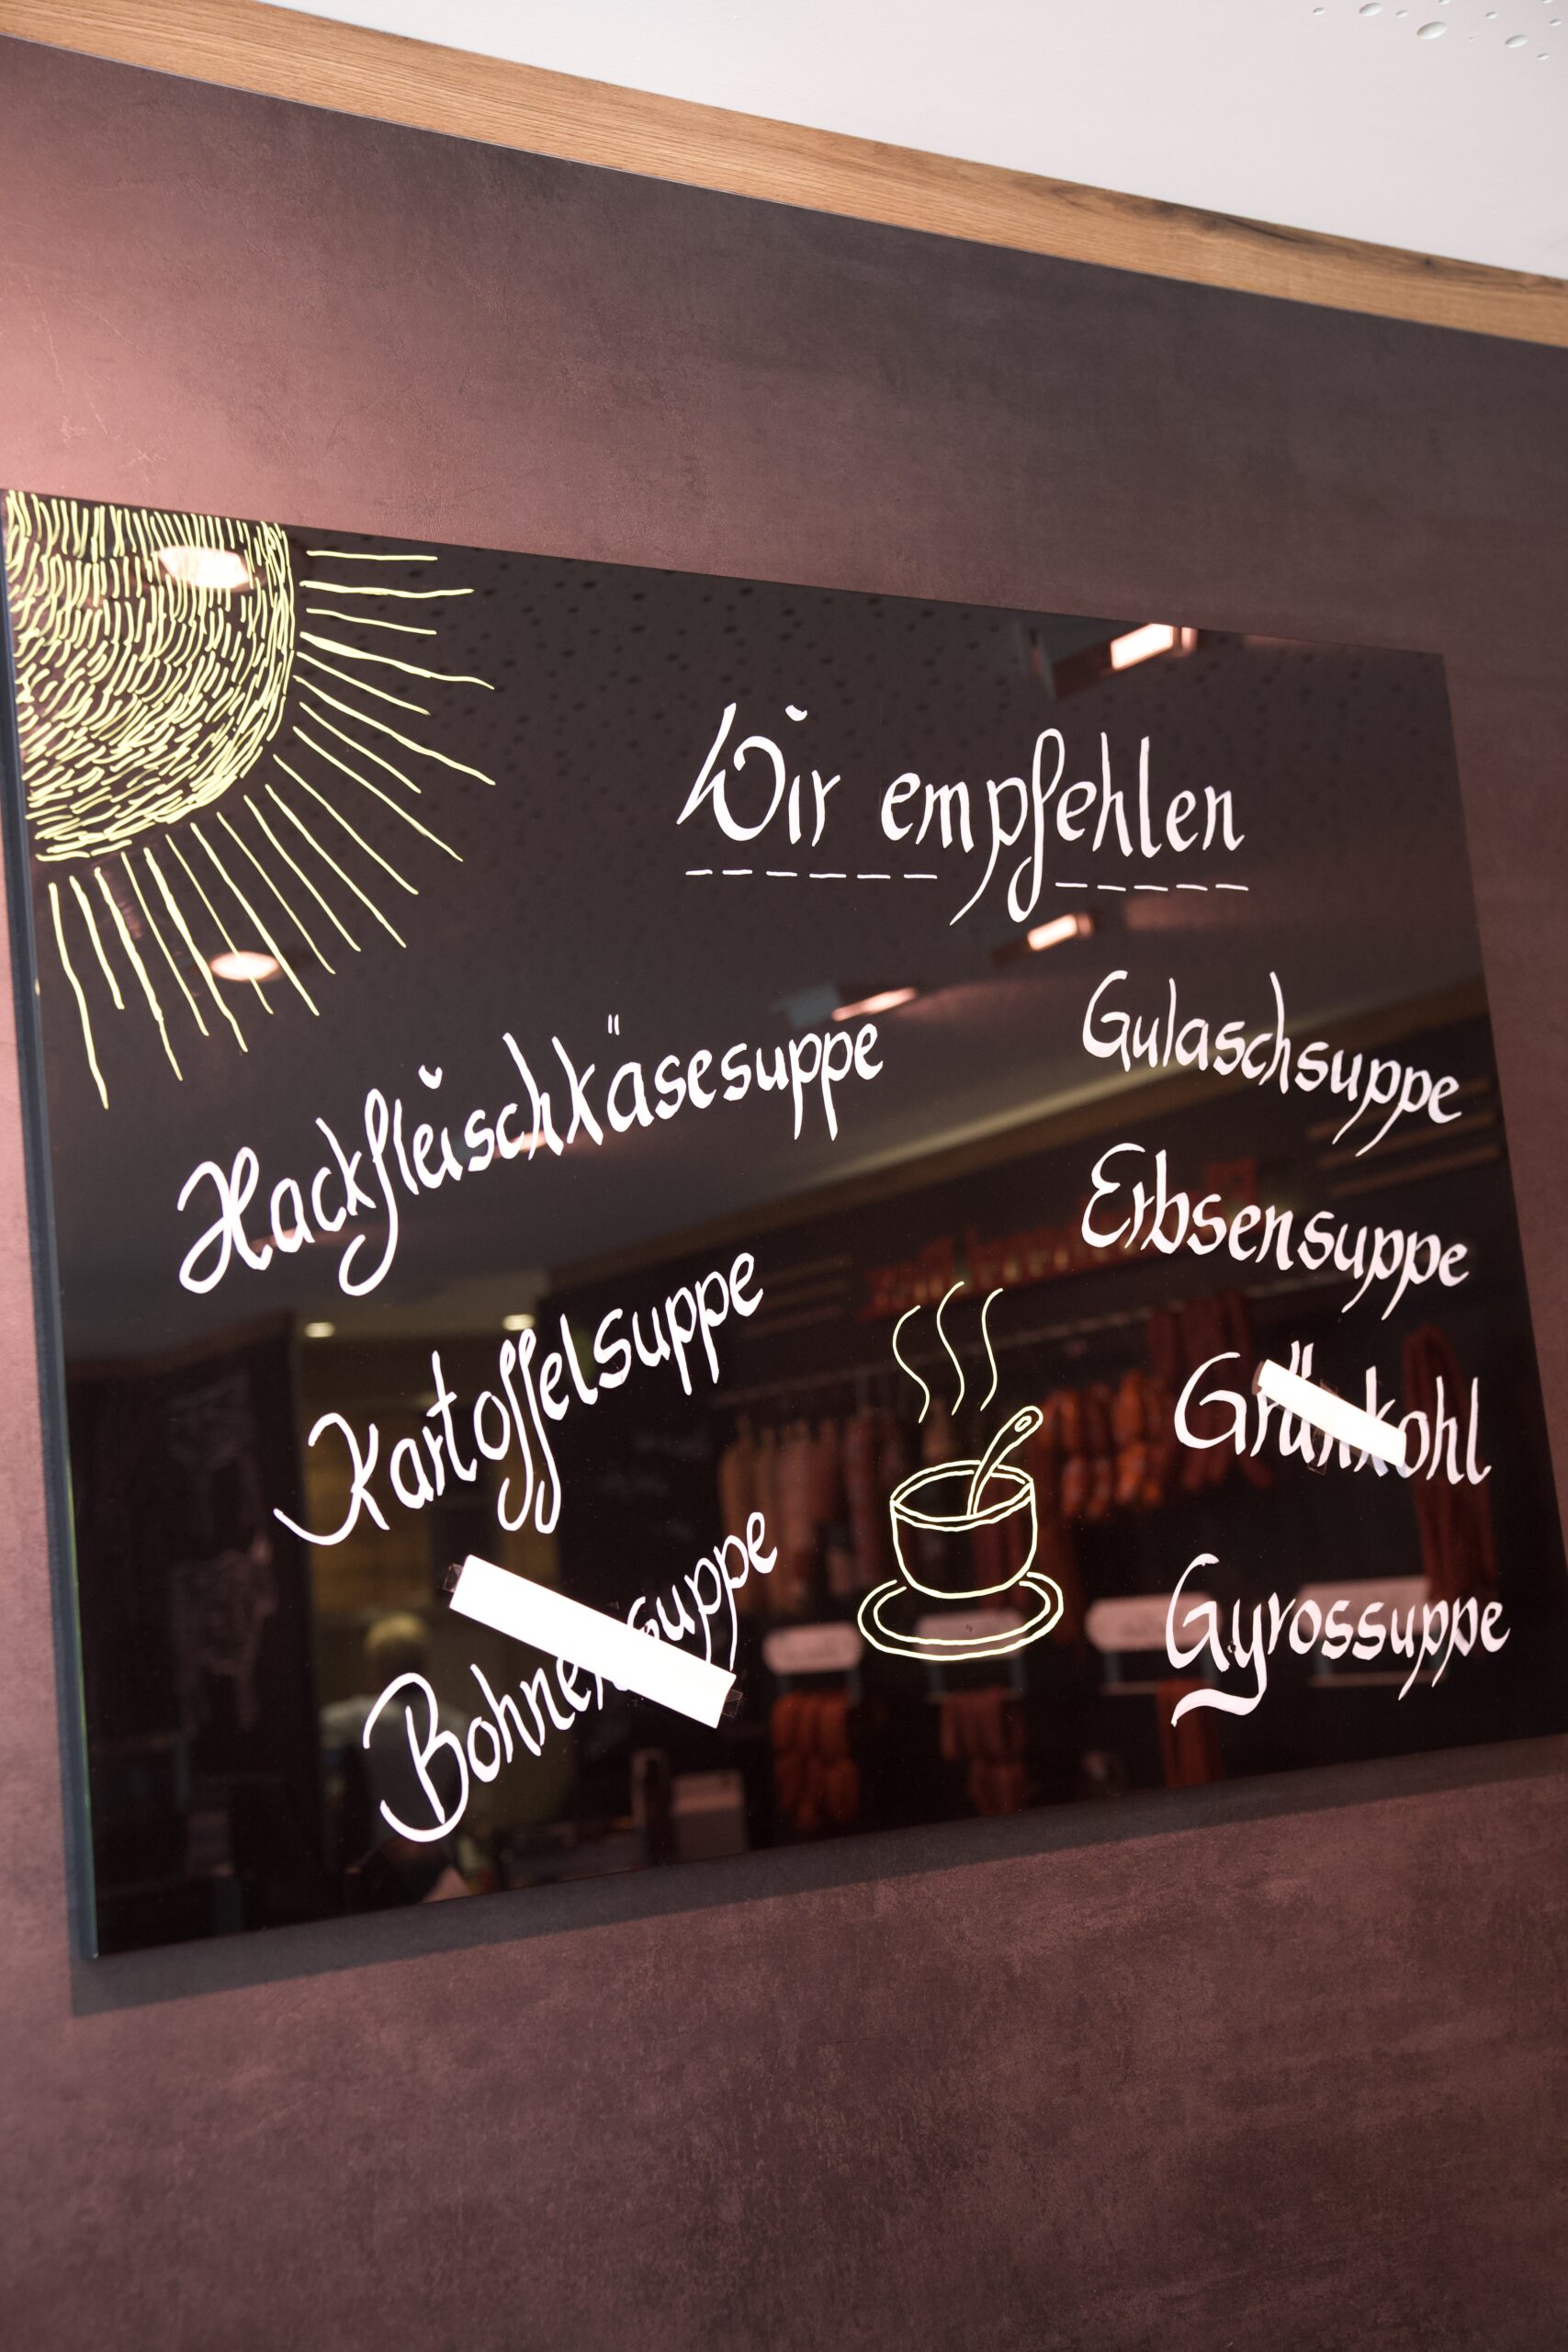 Wir empfehlen
Hackfleischkäsesuppe
Kartoffelsuppe
Bohnensuppe
Gulaschsuppe
Erbsensuppe
Grünkohl
Gyrossuppe